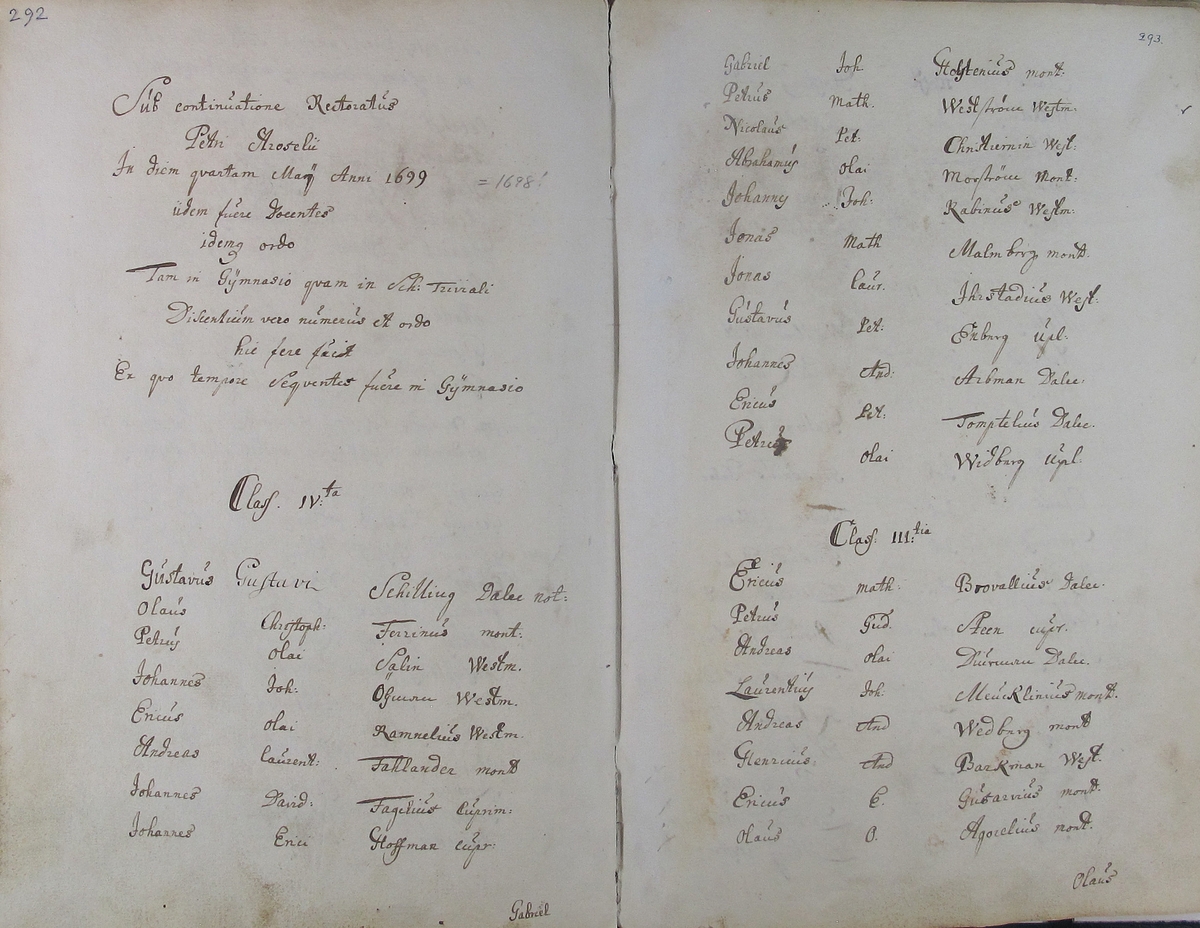 292
Sub continuatione Rectoratus
Petri Aroselii
In diem quartam Maij Anni 1699 = 1698!
iidem fuere Docentes
idemq ordo
Tam in Gÿmnasio qvam in Sch: Triviali
Discentium vero numerus et ordo
hic fere fuit
Ex qvo tempore Seqventes fuere in Gÿmnasio
Class. IV:ta
Gustavus Gustavi Schilling Dalec not:
Olaus Christoph: Ferrinus mont:
Petrus Olai Salin Westm.
Johannes Joh: Westm.
Ericus Olai Ramnelius Westm.
Andreas Laurent: Fahlander mont
Johannes David: Fagelius Cuprim:
Johannes Erici Hoffman Cupr:
Gabriel
293.
Gabriel Joh Holstenius mont:
Petrus Math. Westström Westm:
Nicolaus Pet: Christiernin West:
Abrahamus Olai Morström Mont:
Johannes Joh: Rabinus Westm:
Jonas Math Malmberg mont.
Jonas Laur. Ihrstadius West:
Gustavus Pet: Enberg Upl:
Johannes And: Arbman Dalec.
Ericus Pet. Tomptelius Dalec.
Petrus Olai Widberg Upl.
Class. III:tia
Ericus Math: Boovallius Dalec.
Petrus Gud. Steen cupr.
Andreas Olai Dalec.
Laurentius Joh. Meucklinius mont.
Andreas And Wedberg mont
Henricus And Barkman West.
Ericus E. Gusarvius mont.
Olaus O. Agorelius mont.
Olaus